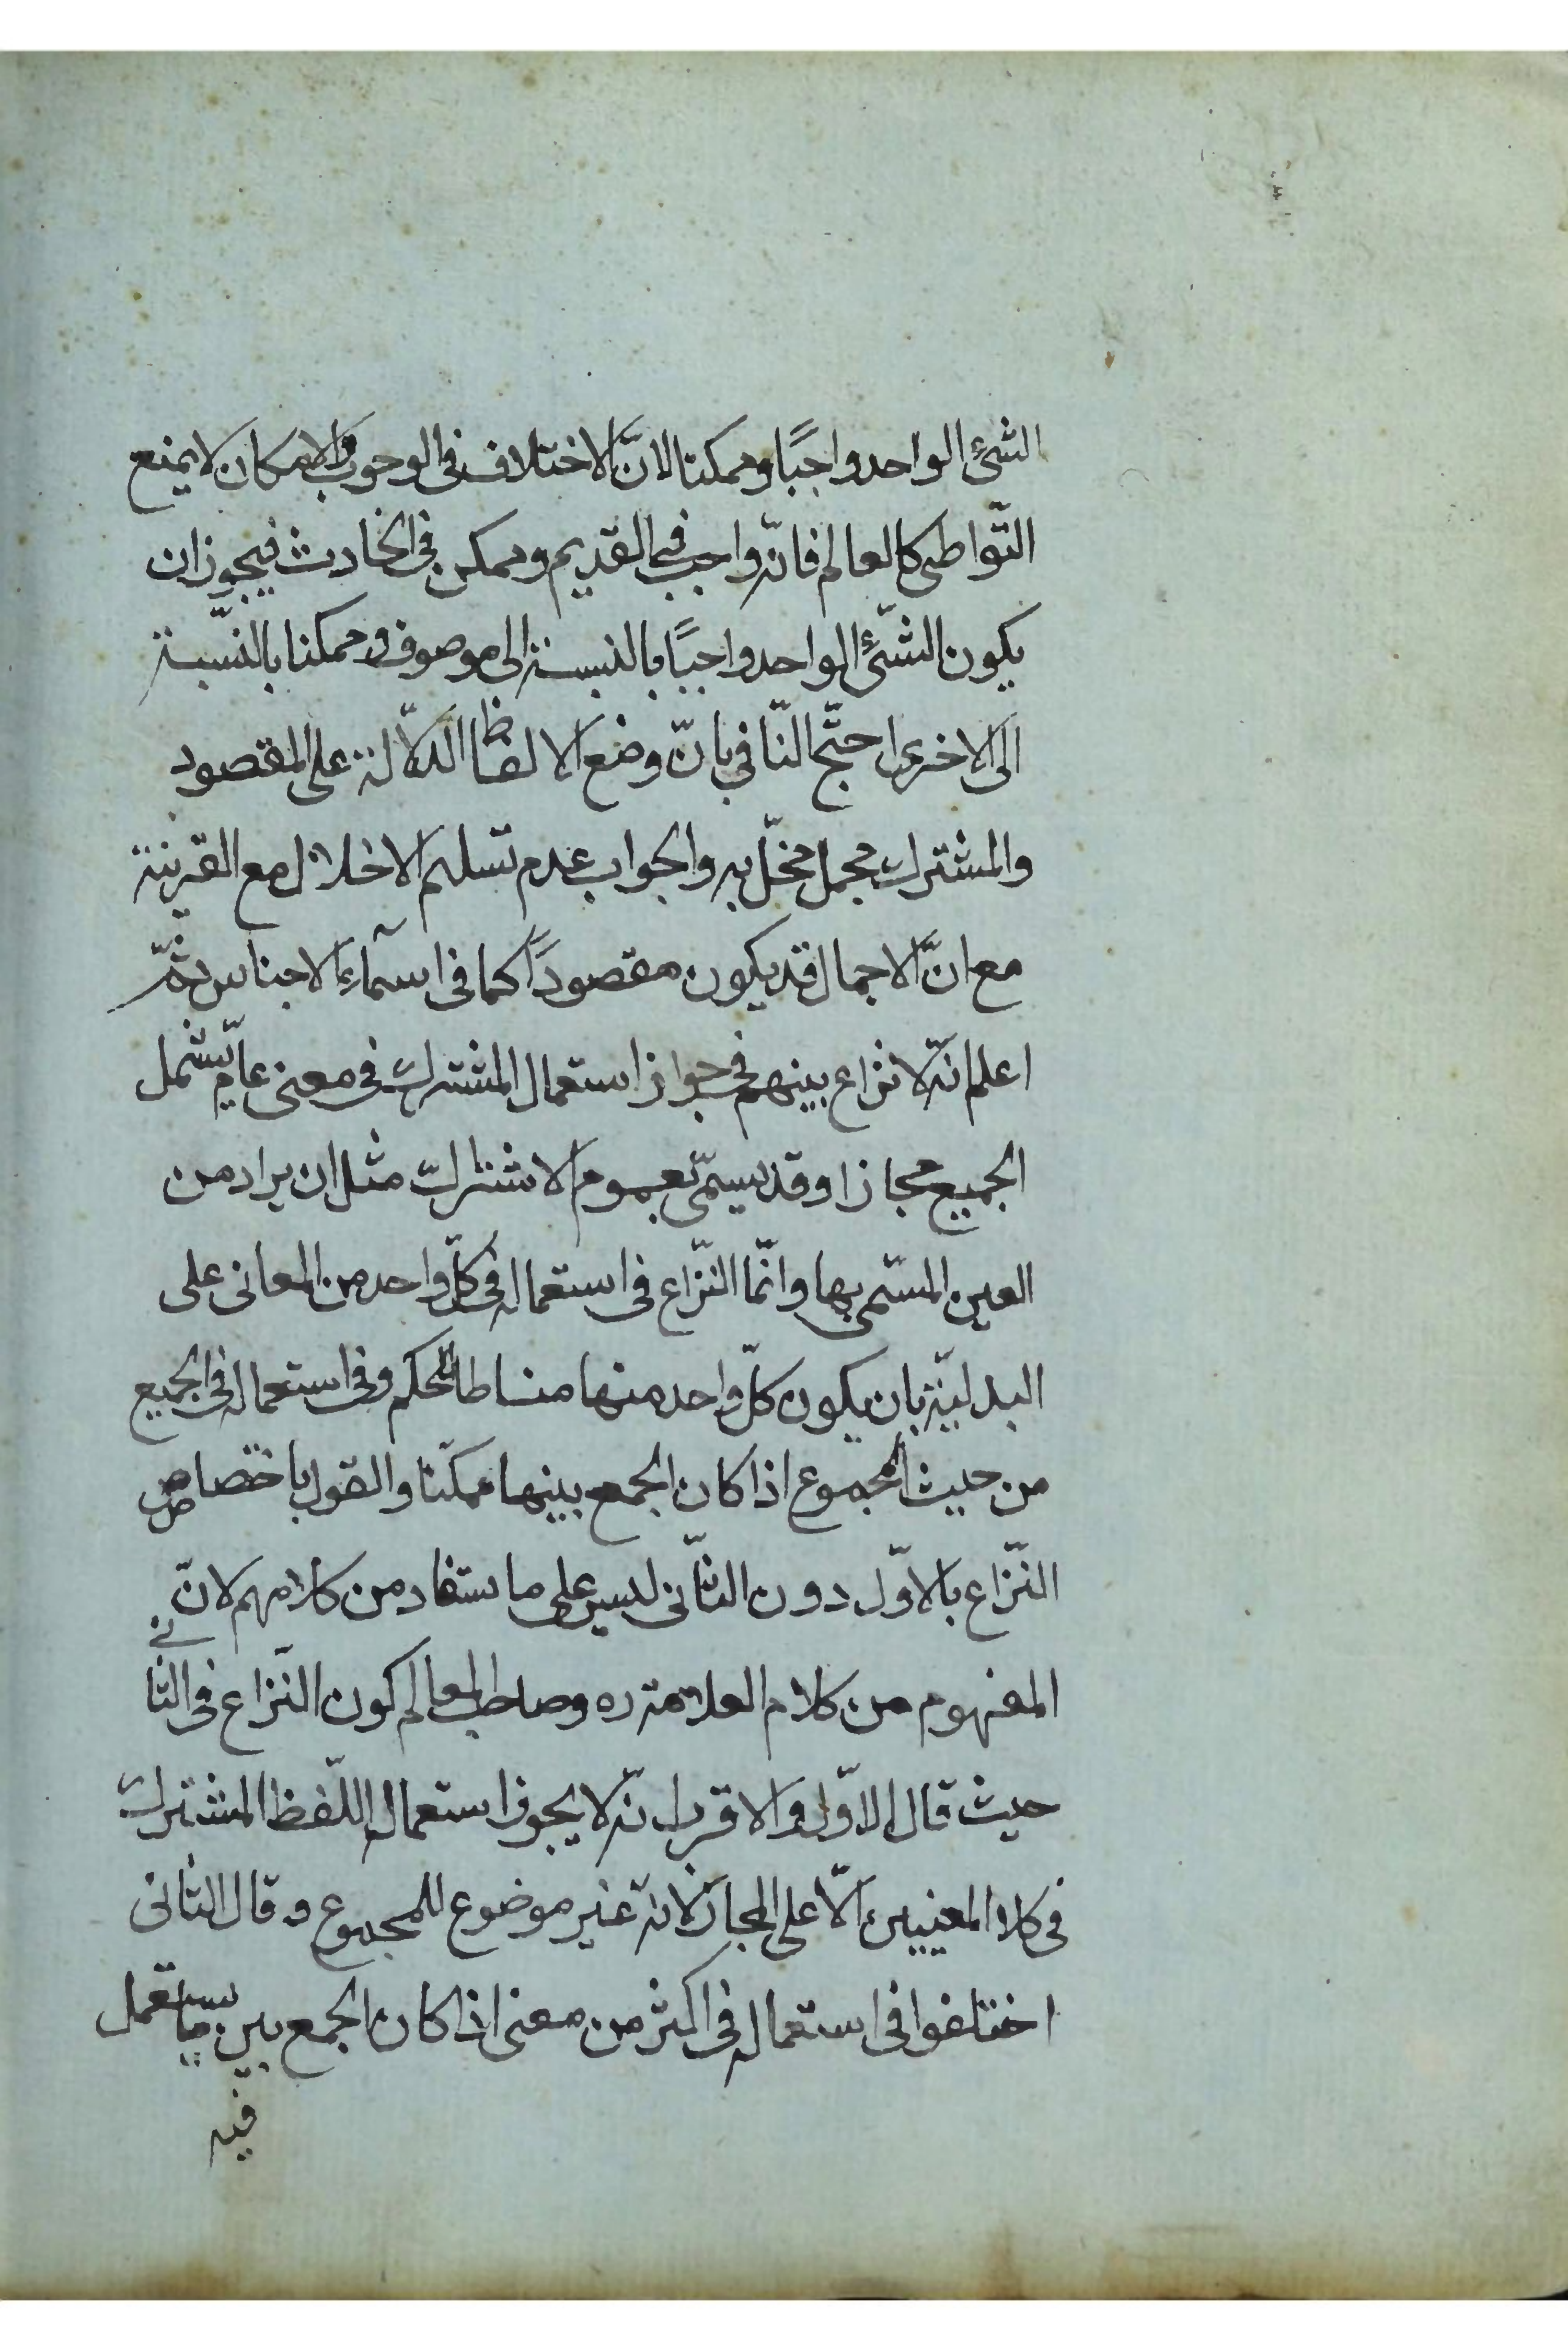 الشئ الواحد واجبًا وممكنا لانّ الاختلاف فى الوجوب والامكان لا يمنع
التّواطى كالعالم فانّه واجب فى القديم وممكن فى الحادث فيجوز ان
يكون الشّئ الواحد واجبًا بالنسبة الى موصوف وممكنا بالنّسبة
الى الاخرى احتّج النّافي بانّ وضع الالفاظ الدّلالة على المقصود
والمشترك مجمل مخّل به والجواب عدم تسليم الاخلال مع القرينة
مع انّ الاجمال قد يكون مقصودًا كما فى اسمآءِ الاجناس ثمّ
اعلم انّه لا نزاع بينهم فى جواز استعمال المشترك فى معنى عامّ يشمل
الجميع مجازا وقد يسمّى بعموم الاشتراك مثل ان يراد من
العين المسّمى بها وانّما النّزاع فى استعماله فى كلّ واحد من المعانى على
البدليّة بان يكون كلّ واحد منها مناطا للحكم وفى استعماله فى الجميع
من حيث المجموع اذا كان الجمع بينها ممكنا والقول باختصاص
النّزاع بالاوّل دون الثّانى ليس على ما يستفاد من كلامهم لانّ
المفهوم من كلام العلامة ره وصاحب المعالم كون النّزاع فى الثّانے
حيث قال الاوّل والاقرب انّه لا يجوز استعمال اللّفظ المشترك
فى كلا المعنيين الّا على المجاز لانّه غير موضوع للمجموع وقال الثانى
اختلفوا فى استعماله فى اكثر من معنى اذا كان الجمع بين ما يستعمل
فيه